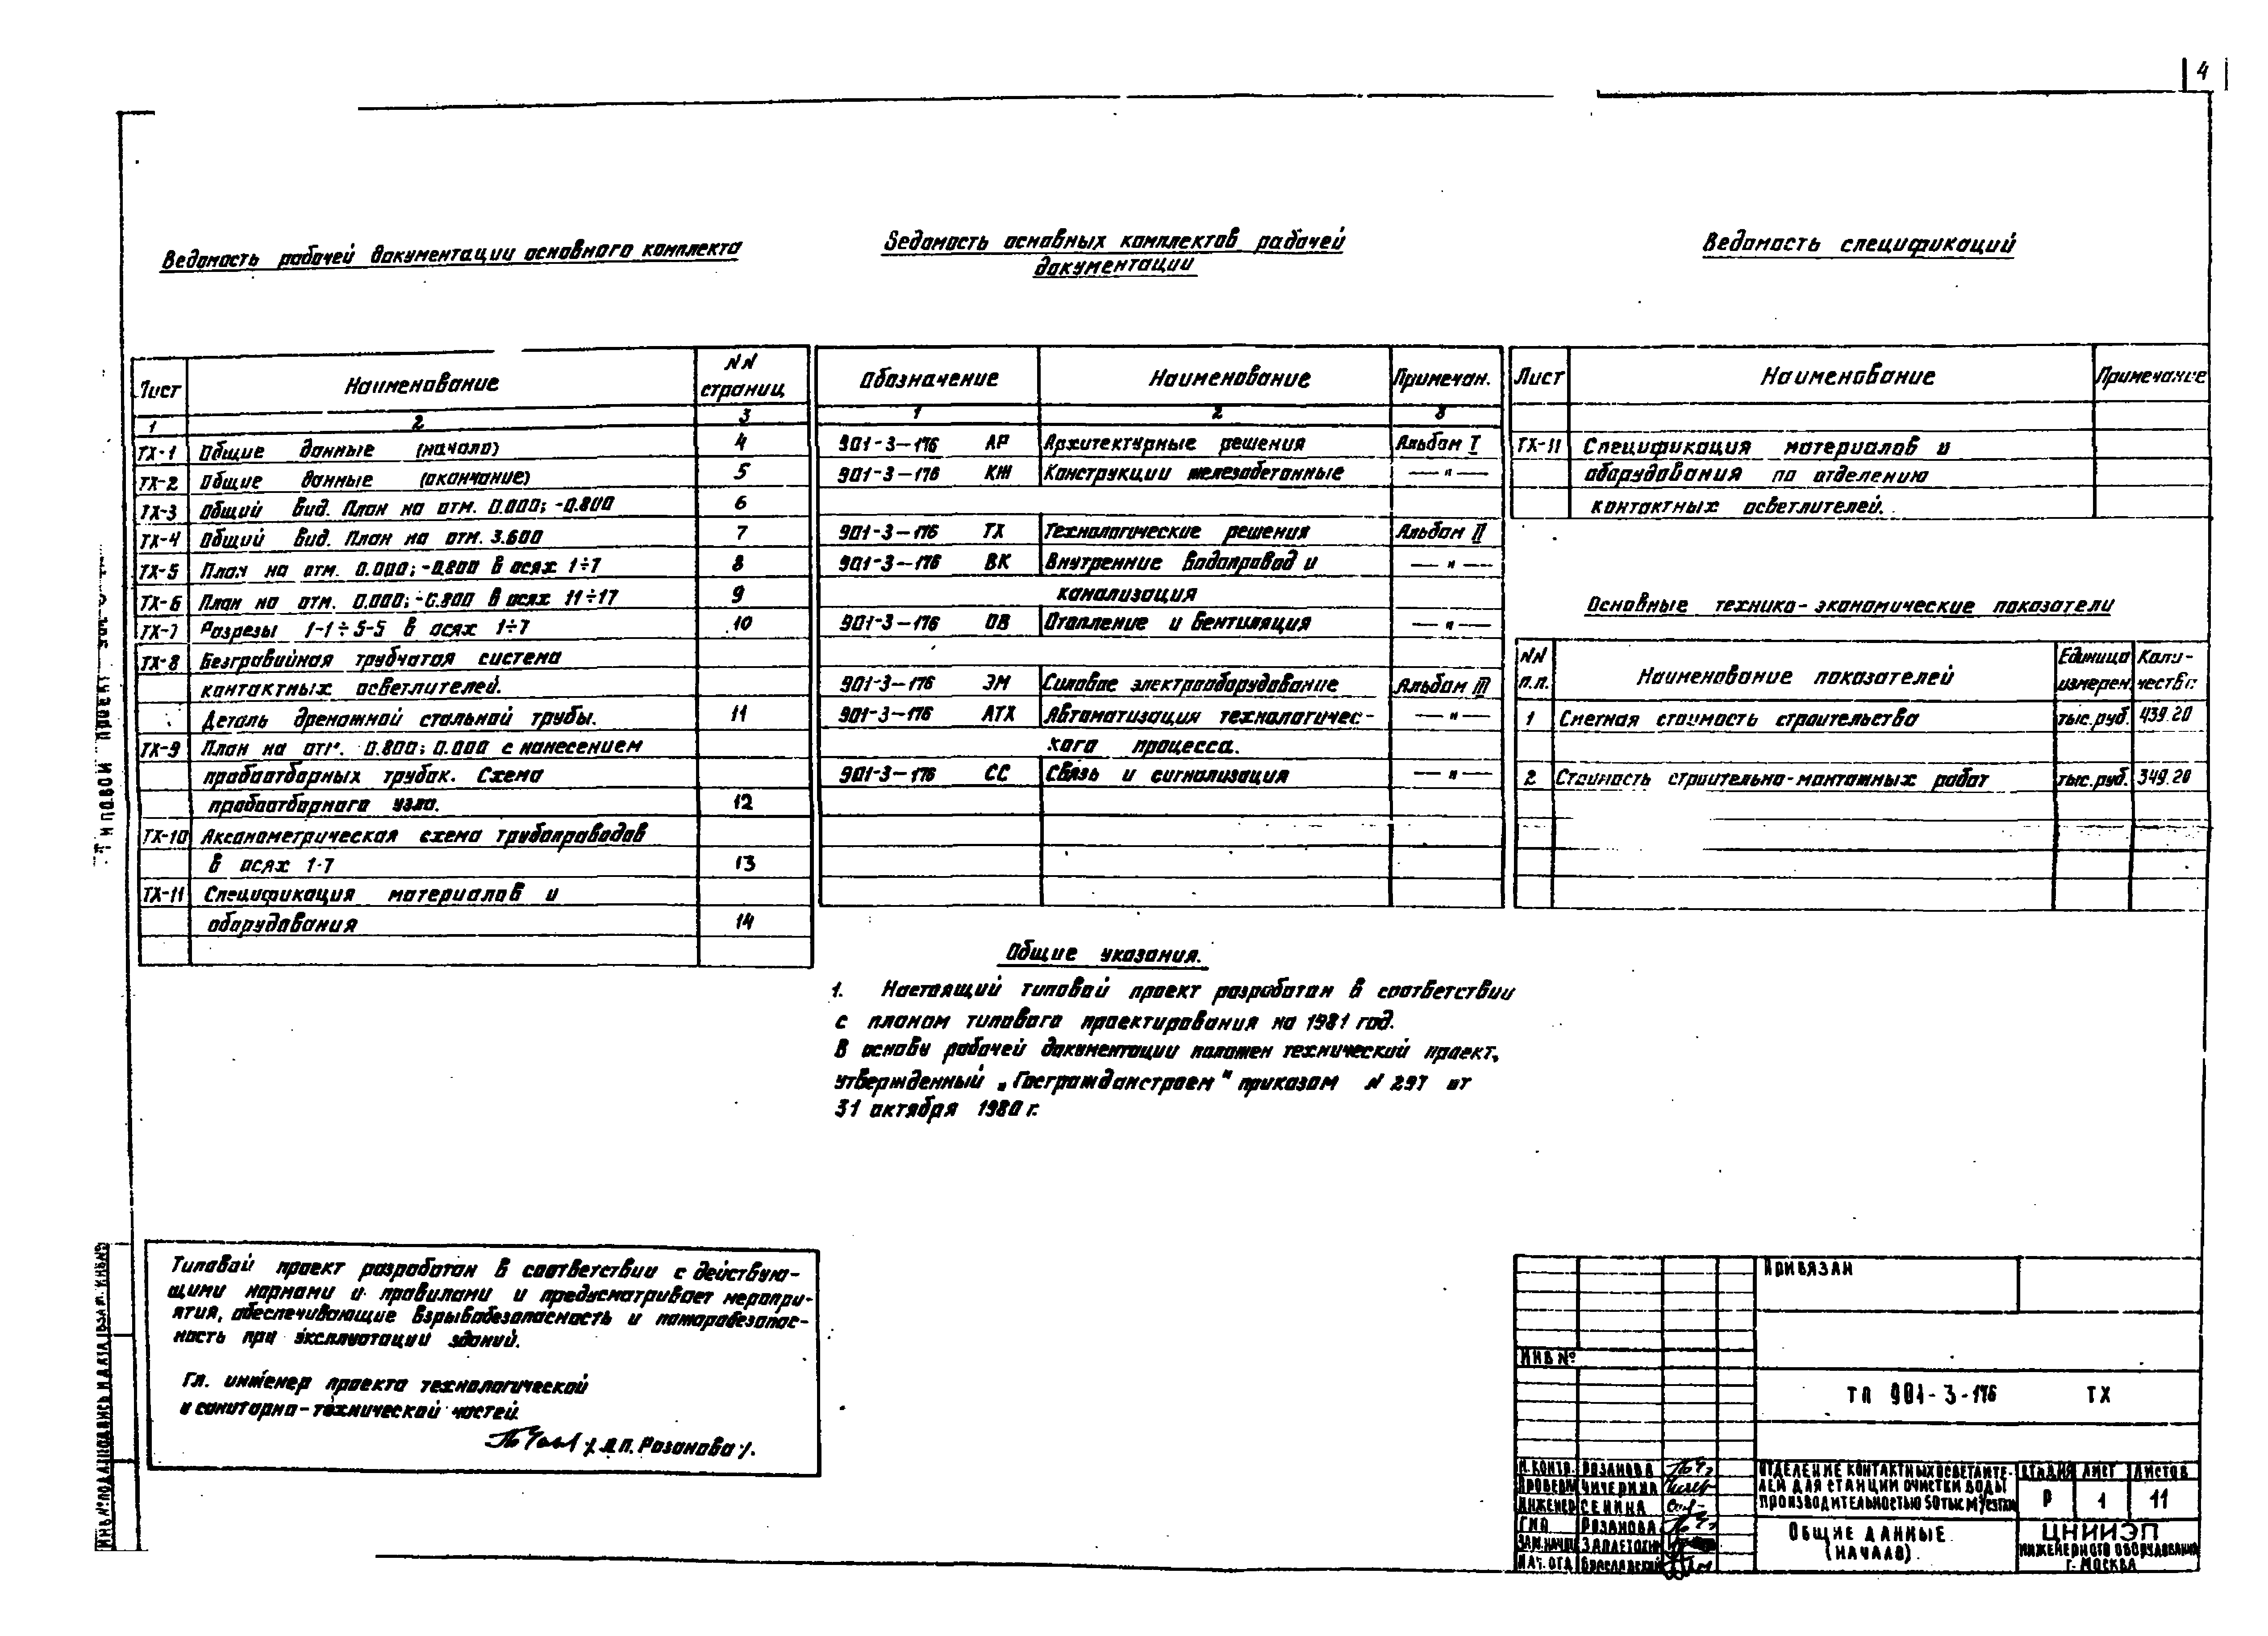 4
Ведомость рабочей документации основного комплекта
Лист Наименование NN страниц
1 2 3
ТХ-1 Общие данные (начало) 4
ТХ-2 Общие данные (окончание) 5
ТХ-3 Общий вид. План на отм. 0.000; -0.800 6
ТХ-4 Общий вид. План на отм. 3.600 7
ТХ-5 План на отм. 0.000; -0.800 в осях 1÷7 8
ТХ-6 План на отм. 0.000; -0.800 в осях 11÷17 9
ТХ-7 Разрезы 1-1÷5-5 в осях 1÷7 10
ТХ-8 Безгравийная трубчатая система
контактных осветлителей.
Деталь дренажной стальной трубы. 11
ТХ-9 План на отм. 0.800; 0.000 с нанесением
пробоотборных трубок. Схема
пробоотборного узла. 12
ТХ-10 Аксонометрическая схема трубопроводов
в осях 1-7 13
ТХ-11 Спецификация материалов и
оборудования 14
Ведомость основных комплектов рабочей
документации
Обозначение Наименование Примечан.
1 2 3
901-3-176 АР Архитектурные решения Альбом I
901-3-176 КЖ Конструкции железобетонные —"—
901-3-176 ТХ Технологические решения Альбом II
901-3-176 ВК Внутренние водопровод и —"—
канализация
901-3-176 ОВ Отопление и вентиляция —"—
901-3-176 ЭМ Силовое электрооборудование Альбом III
901-3-176 АТХ Автоматизация технологичес- —"—
кого процесса.
901-3-176 СС Связь и сигнализация —"—
Ведомость спецификаций
Лист Наименование Примечание
ТХ-11 Спецификация материалов и
оборудования по отделению
контактных осветлителей.
Основные технико-экономические показатели
NN п.п. Наименование показателей Единица измерен. Количество
1 Сметная стоимость строительства тыс.руб. 439.20
2 Стоимость строительно-монтажных работ тыс.руб. 349.20
Общие указания.
1. Настоящий типовой проект разработан в соответствии
с планом типового проектирования на 1981 год.
В основу рабочей документации положен технический проект,
утвержденный „Госгражданстроем" приказом N 297 от
31 октября 1980 г.
Типовой проект разработан в соответствии с действую-
щими нормами и правилами и предусматривает меропри-
ятия, обеспечивающие взрывобезопасность и пожаробезопас-
ность при эксплуатации зданий.
Гл. инженер проекта технологической
и санитарно-технической частей
/Л.П. Розанова/.
Типовой проект
Инв.№ подл. Подпись и дата Взам. инв.№
Привязан
Инв №
ТП 901-3-176 ТХ
Н. контр. Розанова
Проверил Чичерина
Инженер Сенина
ГИП Розанова
Зам.нач. Заплетохин
Нач. отд. Браславский
Отделение контактных осветлите-
лей для станции очистки воды
производительностью 50 тыс. м³/сутки
Стадия Лист Листов
Р 1 11
Общие данные
(начало).
ЦНИИЭП
инженерного оборудования
г. Москва